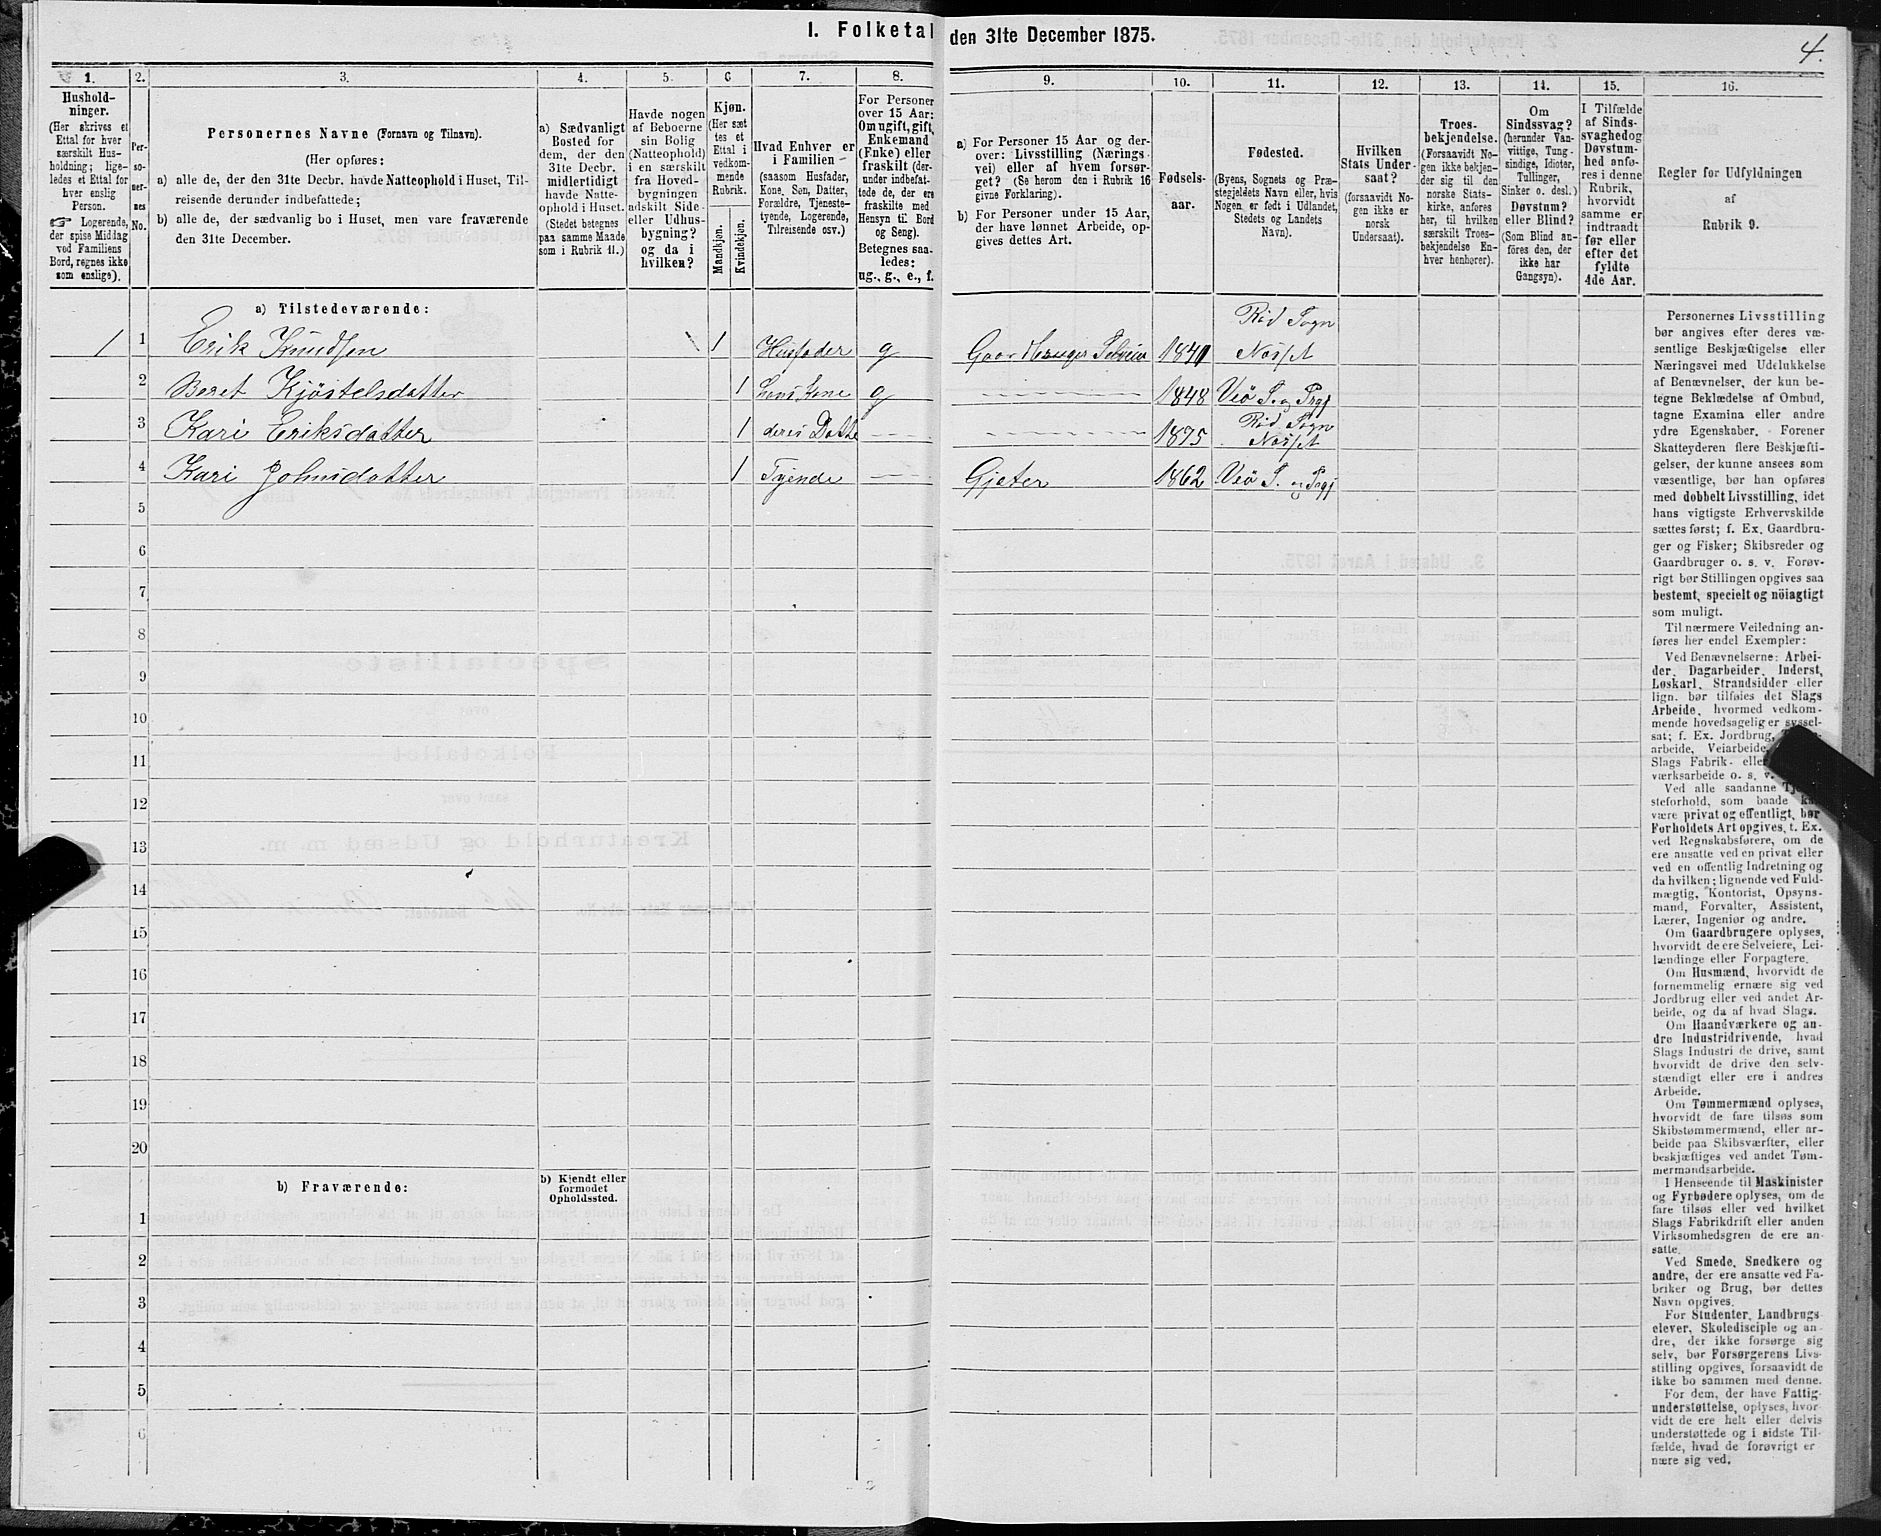 I. Folketal den 31te December 1875.
4.
1. 2. 3. 4. 5. 6 7. 8. 9. 10. 11. 12. 13. 14. 15. 16.
Hushold-
ninger.
(Her skrives et
Ettal for hver
særskilt Hus-
holdning; lige-
ledes et Ettal for
hver enslig
Person.
☞ Logerende,
der spise Middag
ved Familiens
Bord, regnes ikke
som enslige).
Per-
so-
ner-
nes
No.
Personernes Navne (Fornavn og Tilnavn).
(Her opføres:
a) alle de, der den 31te Decbr. havde Natteophold i Huset, Til-
reisende derunder indbefattede;
b) alle de, der sædvanlig bo i Huset, men vare fraværende
den 31te December.
a) Sædvanligt
Bosted for
dem, der den
31te Decbr.
midlertidigt
havde Natte-
ophold i Huset.
(Stedet betegnes
paa samme Maade
som i Rubrik 11.)
Havde nogen
af Beboerne
sin Bolig
(Natteophold)
i en særskilt
fra Hoved-
bygningen
adskilt Side-
eller Udhus-
bygning?
og da i
hvilken?
Kjøn.
(Her sæt
tes et
Ettal i
vedkom-
mende
Rubrik.
Mandkjøn.
Kvindekjøn.
Hvad Enhver er
i Familien
(saasom Husfader,
Kone, Søn, Datter,
Forældre, Tjeneste-
tyende, Logerende,
Tilreisende osv.)
For Personer
over 15 Aar:
Om ugift, gift,
Enkemand
(Enke) eller
fraskilt (der-
under indbefat-
tede de, der ere
fraskilte med
Hensyn til Bord
og Seng).
Betegnes saa-
ledes:
ug., g., e., f.
a) For Personer 15 Aar og der-
over: Livsstilling (Nærings-
vei) eller af hvem forsør-
get? (Se herom den i Rubrik 16
givne Forklaring).
b) For Personer under 15 Aar,
der have lønnet Arbeide, op-
gives dettes Art.
Fødsels-
aar.
Fødested.
(Byens, Sognets og Præ-
stegjeldets Navn eller, hvis
Nogen er født i Udlandet,
Stedets og Landets
Navn).
Hvilken
Stats Under-
saat?
(forsaavidt No-
gen ikke er
norsk
Undersaat).
Troes-
bekjendelse.
(Forsaavidt No-
gen ikke bekjen-
der sig til den
norske Stats-
kirke, anføres
her, til hvilken
særskilt Troes-
bekjendelse En-
hver henhører).
Om
Sindssvag?
(herunder Van-
vittige, Tung-
sindige, Idioter,
Tullinger,
Sinker o. desl.)
Døvstum?
eller Blind?
(Som Blind an-
føres den, der
ikke har
Gangsyn).
I Tilfælde
af Sinds-
svaghed og
Døvstum-
hed anfø-
res i denne
Rubrik,
hvorvidt
samme er
indtraadt
før eller
efter det
fyldte
4de Aar.
Regler for Udfyldningen
af
Rubrik 9.
a) Tilstedeværende:
1 1 Erik Knudsen 1 Husfader g Gaardbruger Selveier 1841 Rød Sogn Nesset
2 Beret Kjøstelsdatter 1 hans Kone g 1848 Veø S. og Prgj
3 Kari Eriksdatter 1 deres Datte 1875 Rød Sogn Nesset
4 Kari Johnsdatter 1 Tyende Gjeter 1862 Veø S. og Prgj
5
6
7
8
9
10
11
12
13
14
15
16
17
18
19
20
b) Fraværende:
b) Kjendt eller
formodet
Opholdssted.
1
2
3
4
5
6
Personernes Livsstilling
bør angives efter deres væ-
sentlige Beskjæftigelse eller
Næringsvei med Udelukkelse
af Benævnelser, der kun be-
tegne Beklædelse af Ombud,
tagne Examina eller andre
ydre Egenskaber. Forener
Skatteyderen flere Beskjæfti-
gelser, der kunne ansees som
væsentlige, bør han opføres
med dobbelt Livsstilling, idet
hans vigtigste Erhvervskilde
sættes først; f. Ex. Gaardbru-
ger og Fisker; Skibsreder og
Gaardbruger o. s. v. Forøv-
rigt bør Stillingen opgives saa
bestemt, specielt og nöiagtigt
som muligt.
Til nærmere Veiledning an-
føres her endel Exempler:
Ved Benævnelserne: Arbei-
der, Dagarbeider, Inderst,
Løskarl, Strandsidder eller
lign. bør tilføies det Slags
Arbeide, hvormed vedkom-
mende hovedsagelig er syssel-
sat; f. Ex. Jordbrug,
arbeide, Veiarbeide,
Slags Fabrik- eller
værksarbeide o. s. v.
Ved alle saadanne
steforhold, som baade kan
være privat og offentligt, bør
Forholdets Art opgives, t. Ex.
ved Regnskabsførere, om de
ere ansatte ved en privat eller
ved en offentlig Indretning og
da hvilken; lignende ved Fuld-
mægtig, Kontorist, Opsyns-
mand, Forvalter, Assistent,
Lærer, Ingeniør og andre.
Om Gaardbrugere oplyses,
hvorvidt de ere Selveiere, Lei-
lændinge eller Forpagtere.
Om Husmænd, hvorvidt de
fornemmelig ernære sig ved
Jordbrug eller ved andet Ar-
beide, og da af hvad Slags.
Om Haandværkere og an-
dre Industridrivende, hvad
Slags Industri de drive, samt
hvorvidt de drive den selv-
stændigt eller ere i andres
Arbeide.
Om Tømmermænd oplyses,
hvorvidt de fare tilsøs som
Skibstømmermænd, eller ar-
beide paa Skibsværfter, eller
beskjæftiges ved andet Tøm-
mermandsarbeide.
I Henseende til Maskinister
og Fyrbødere oplyses, om de
fare tilsøs eller ved hvilket
Slags Fabrikdrift eller anden
Virksomhedsgren de ere an-
satte.
Ved Smede, Snedkere og
andre, der ere ansatte ved Fa-
briker og Brug, bør dettes
Navn opgives.
For Studenter, Landbrugs-
elever, Skoledisciple og an-
dre, der ikke forsørge sig
selv, bør Forsørgerens Livs-
stilling opgives, forsaavidt de
ikke bo sammen med denne.
For dem, der have Fattig-
understøttelse, oplyses, hvor-
vidt de ere helt eller delvis
understøttede og i sidste Til-
fælde, hvad de forøvrigt er-
nære sig ved.